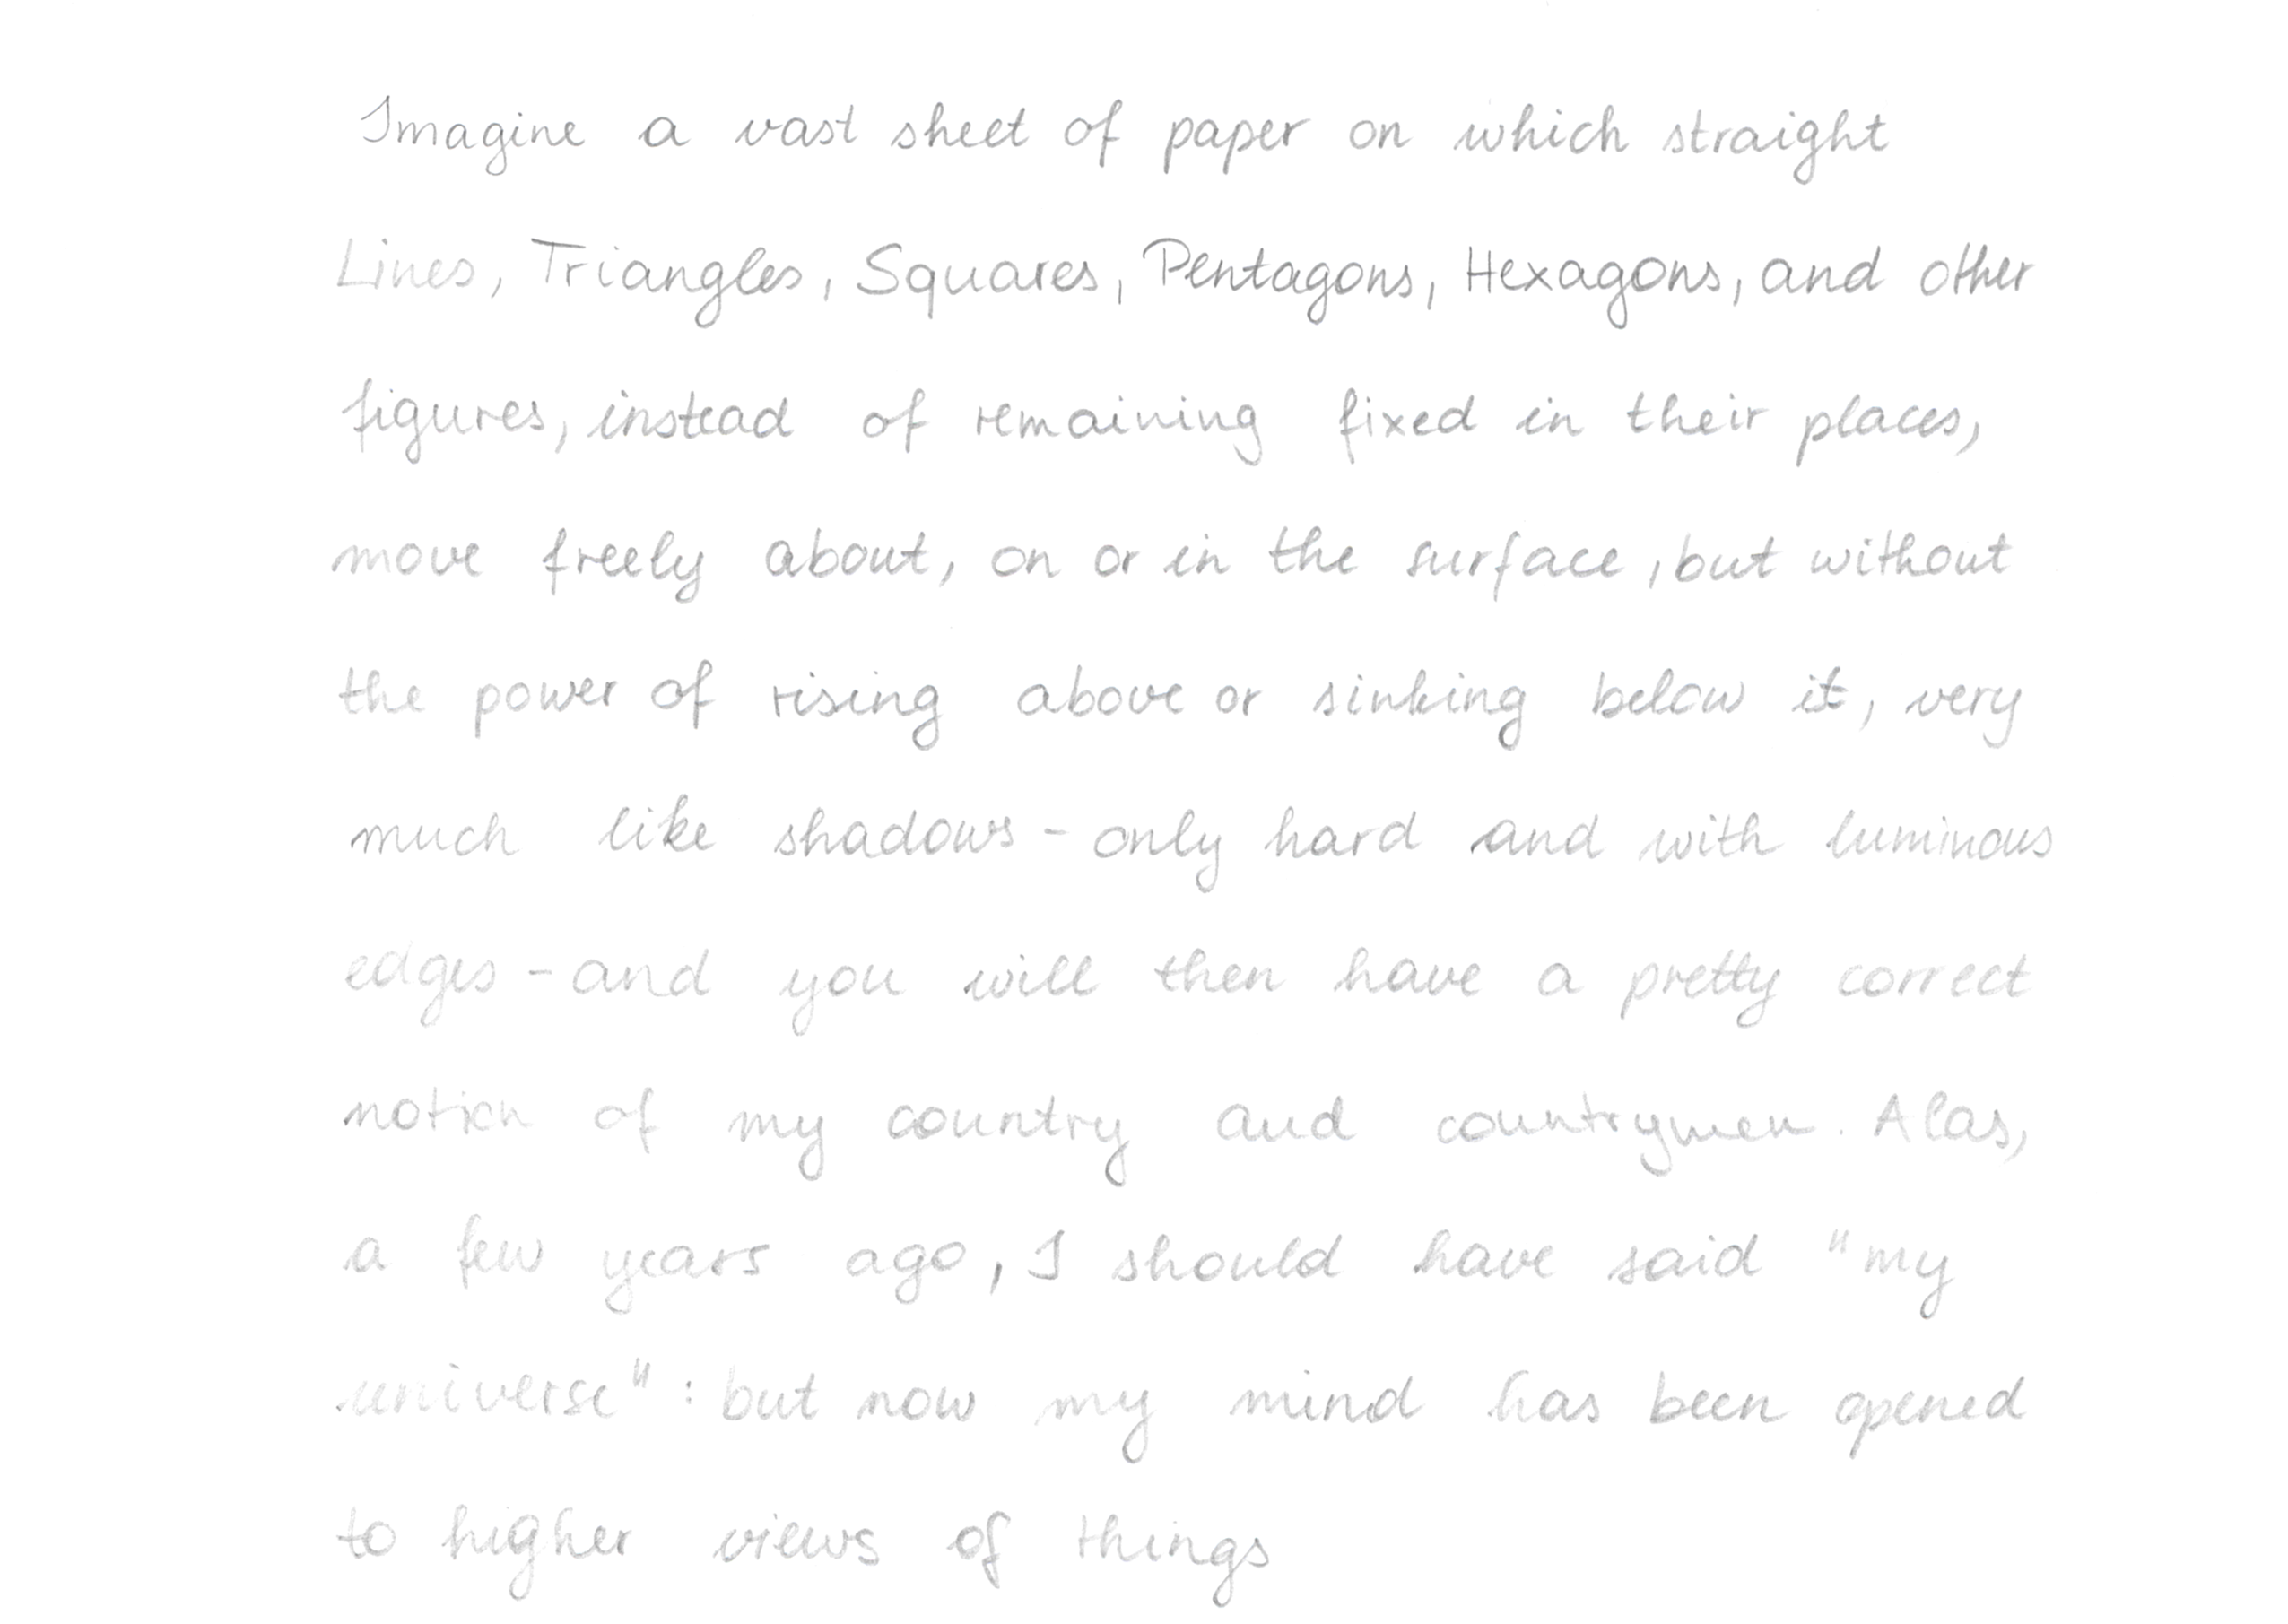 Imagine a vast sheet of paper on which straight
Lines, Triangles, Squares, Pentagons, Hexagons, and other
figures, instead of remaining fixed in their places,
move freely about, on or in the surface, but without
the power of rising above or sinking below it, very
much like shadows - only hard and with luminous
edges - and you will then have a pretty correct
notion of my country and countrymen. Alas,
a few years ago, I should have said "my
universe": but now my mind has been opened
to higher views of things